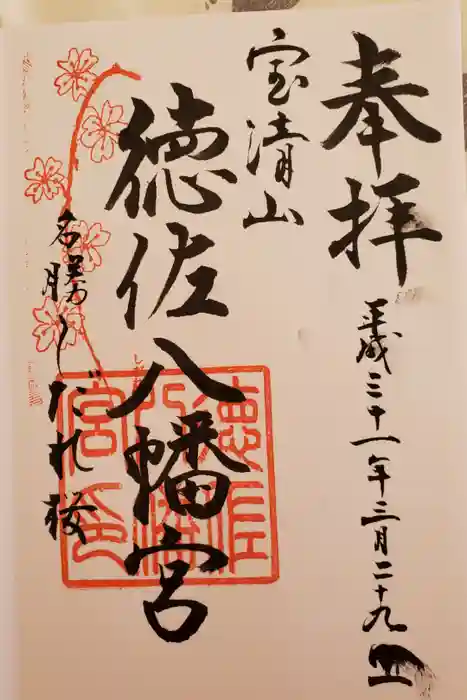 奉拝
平成三十一年三月二十九日
宝清山
徳佐八幡宮
名勝しだれ桜
徳佐八幡宮印